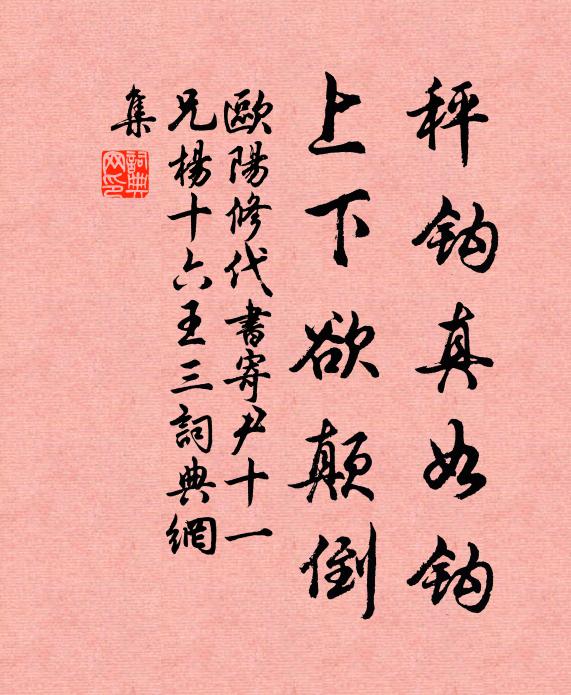 秤鈎真如鈎
上下欲顛倒
歐陽修代書寄尹十一
兄楊十六王三詞典網
集
詞典
网印